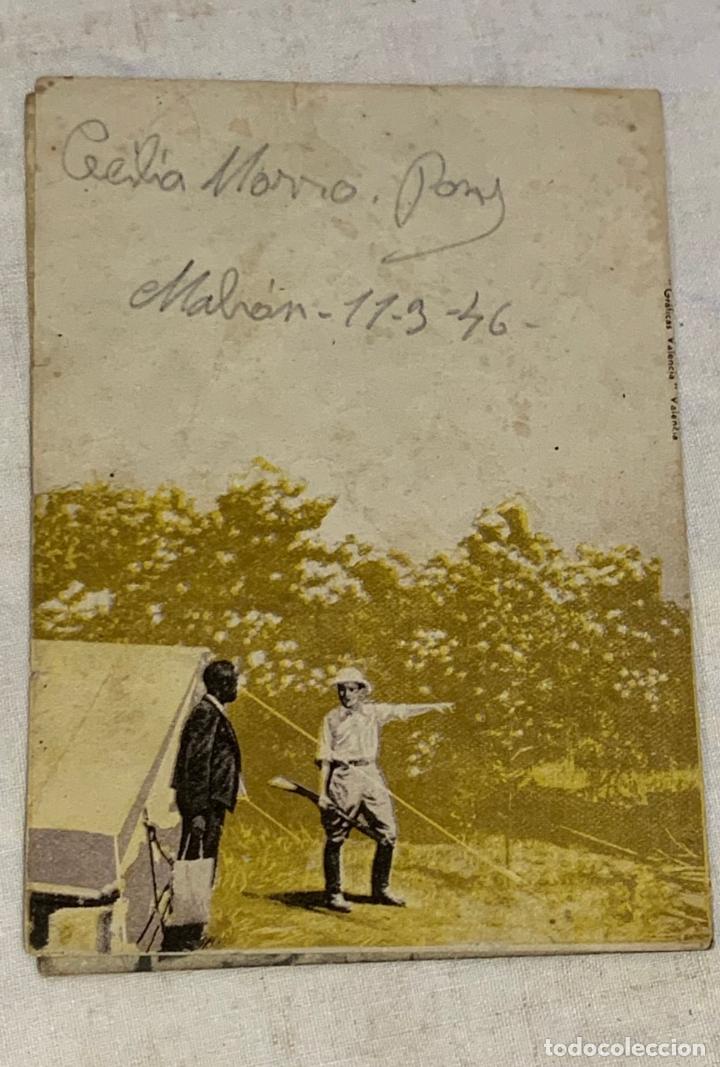 Cecilia Morro. Pons
Mahón - 11-3-46-
"Gráficas Valencia" Valencia
todocoleccion